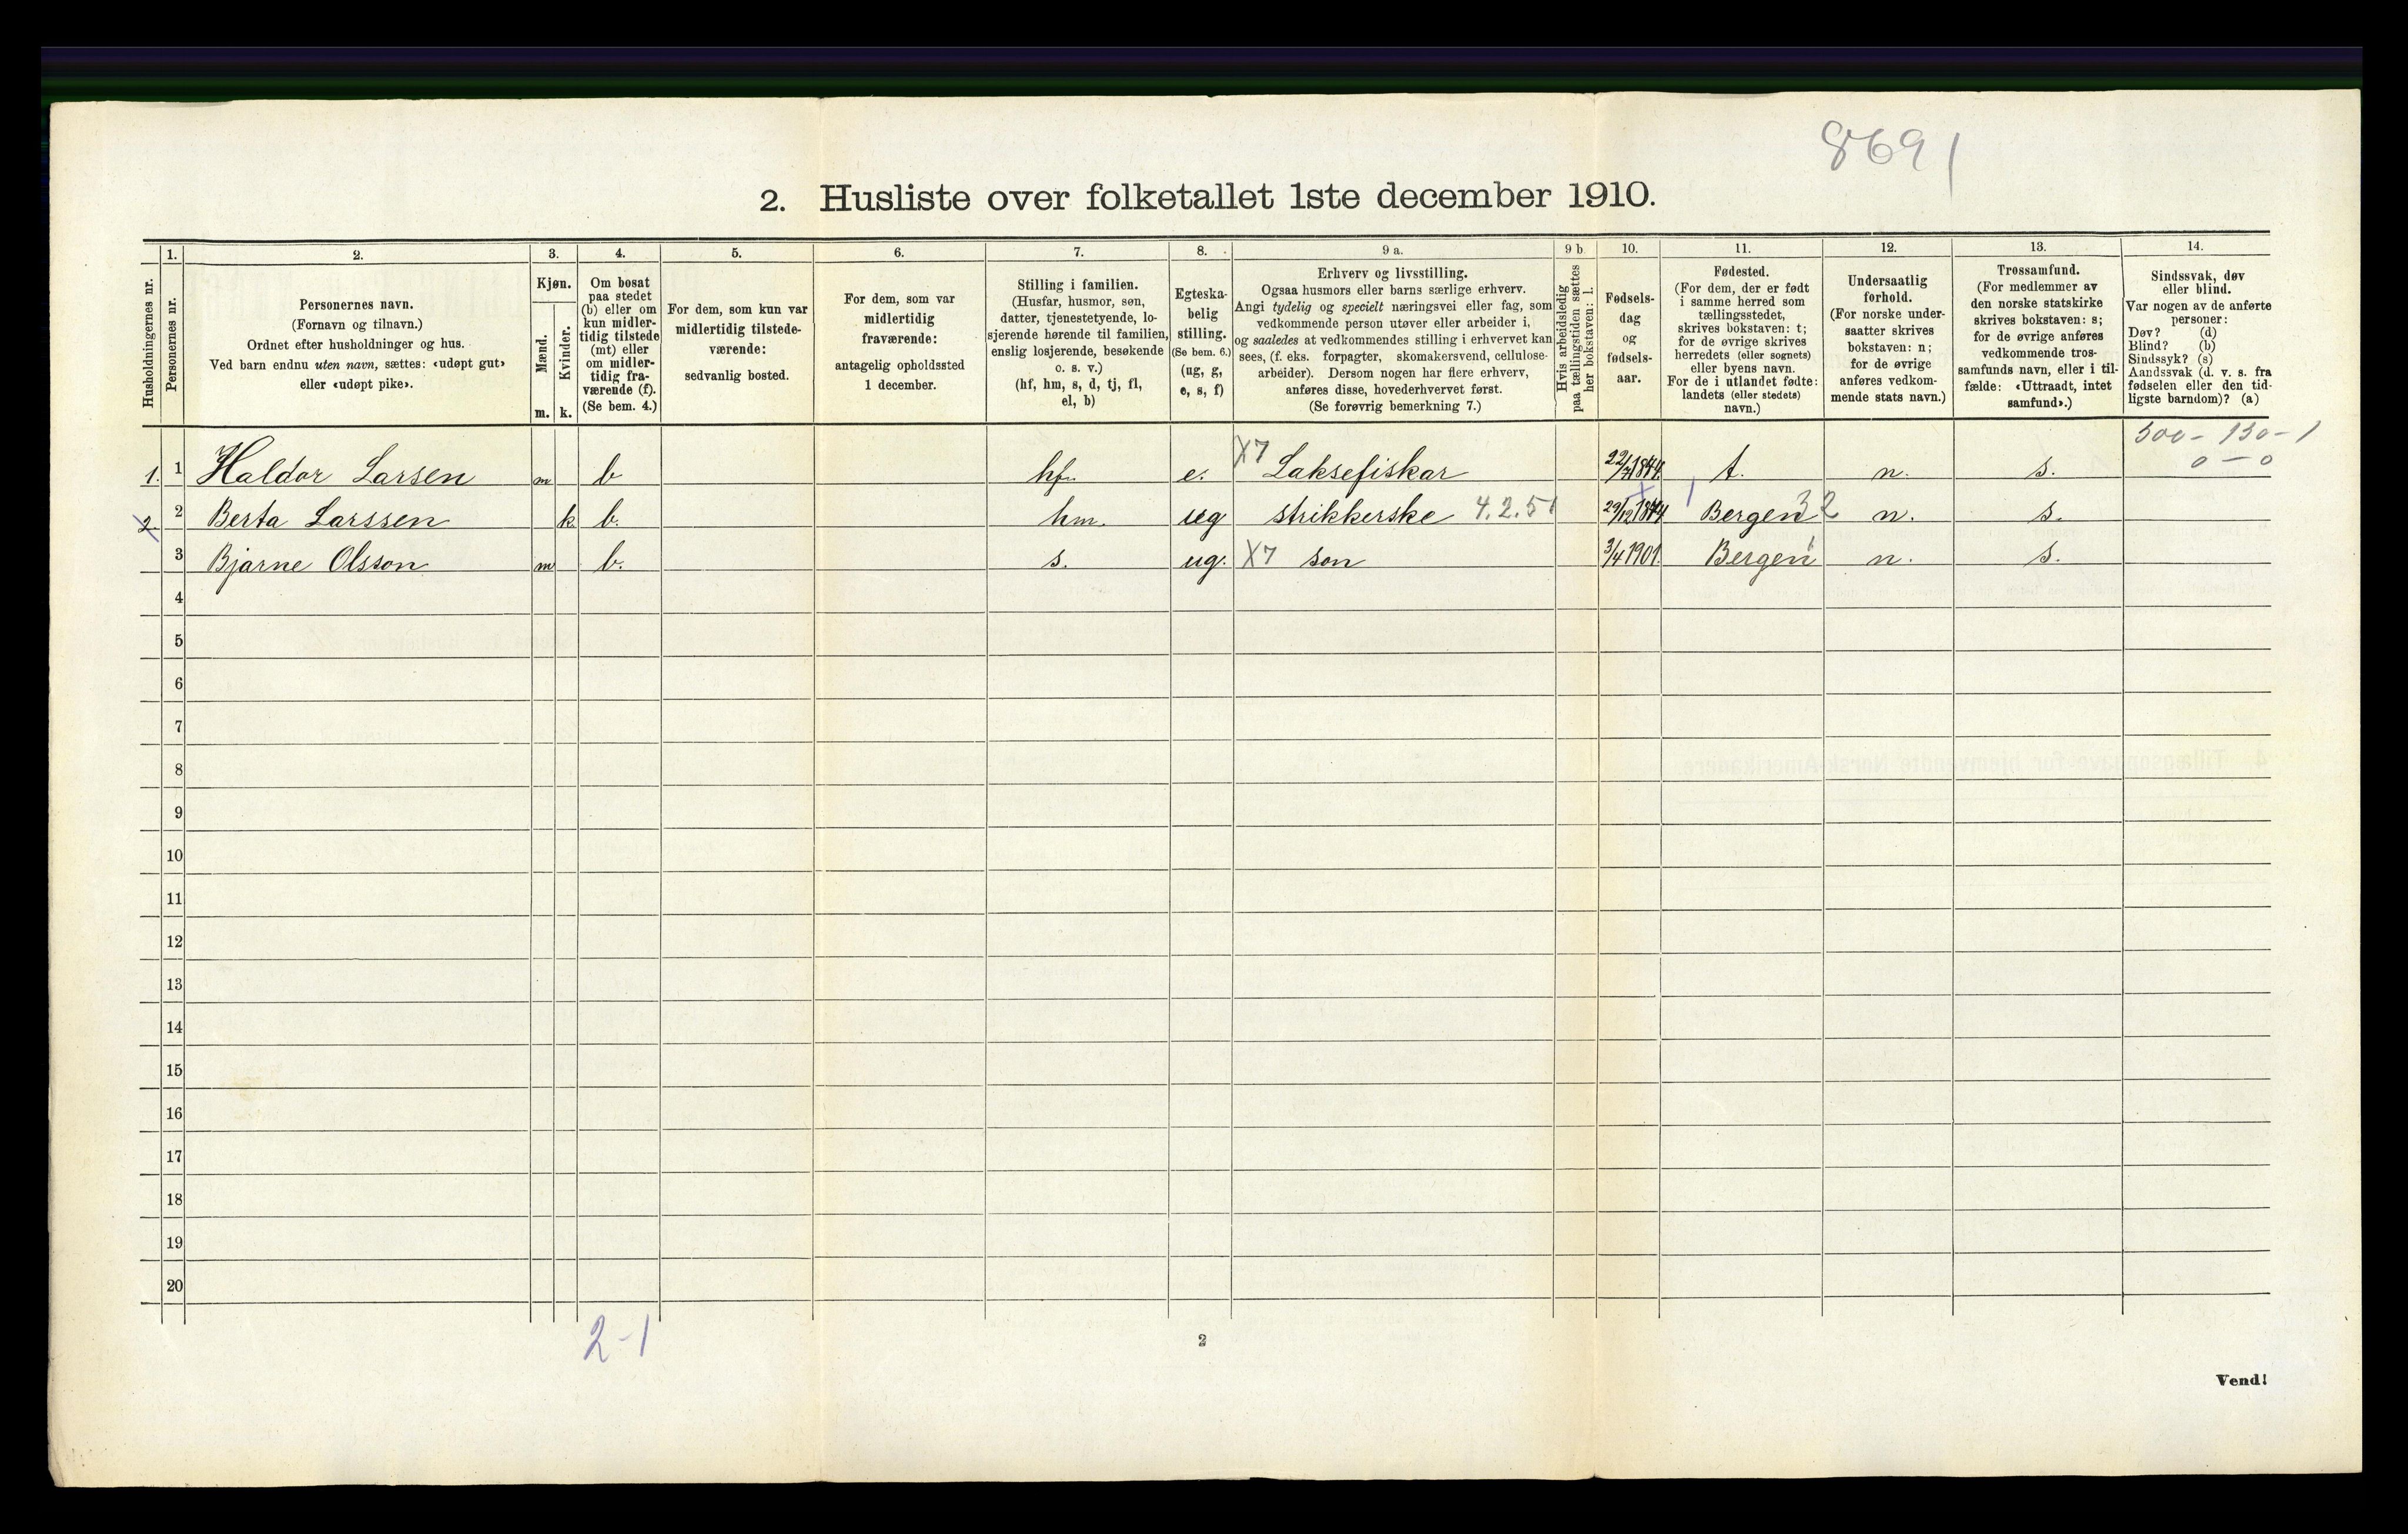 8691
2. Husliste over folketallet 1ste december 1910.
Husholdningernes nr.
1.
Personernes nr.
2.
Personernes navn.
(Fornavn og tilnavn.)
Ordnet efter husholdninger og hus.
Ved barn endnu uten navn, sættes: «udøpt gut»
eller «udøpt pike».
3.
Kjøn.
Mænd.
m.
Kvinder.
k.
4.
Om bosat
paa stedet
(b) eller om
kun midler-
tidig tilstede
(mt) eller
om midler-
tidig fra-
værende (f).
(Se bem. 4.)
5.
For dem, som kun var
midlertidig tilstede-
værende:
sedvanlig bosted.
6.
For dem, som var
midlertidig
fraværende:
antagelig opholdssted
1 december.
7.
Stilling i familien.
(Husfar, husmor, søn,
datter, tjenestetyende, lo-
sjerende hørende til familien,
enslig losjerende, besøkende
o. s. v.)
(hf, hm, s, d, tj, fl,
el, b)
8.
Egteska-
belig
stilling.
(Se bem. 6.)
(ug, g,
e, s, f)
9 a.
Erhverv og livsstilling.
Ogsaa husmors eller barns særlige erhverv.
Angi tydelig og specielt næringsvei eller fag, som
vedkommende person utøver eller arbeider i,
og saaledes at vedkommendes stilling i erhvervet kan
sees, (f. eks. forpagter, skomakersvend, cellulose-
arbeider). Dersom nogen har flere erhverv,
anføres disse, hovederhvervet først.
(Se forøvrig bemerkning 7.)
9 b
Hvis arbeidsledig
paa tællingstiden sættes
her bokstaven: l.
10.
Fødsels-
dag
og
fødsels-
aar.
11.
Fødested.
(For dem, der er født
i samme herred som
tællingsstedet,
skrives bokstaven: t;
for de øvrige skrives
herredets (eller sognets)
eller byens navn.
For de i utlandet fødte:
landets (eller stedets)
navn.)
12.
Undersaatlig
forhold.
(For norske under-
saatter skrives
bokstaven: n;
for de øvrige
anføres vedkom-
mende stats navn.)
13.
Trossamfund.
(For medlemmer av
den norske statskirke
skrives bokstaven: s;
for de øvrige anføres
vedkommende tros-
samfunds navn, eller i til-
fælde: «Uttraadt, intet
samfund».)
14.
Sindssvak, døv
eller blind.
Var nogen av de anførte
personer:
Døv? (d)
Blind? (b)
Sindssyk? (s)
Aandssvak (d. v. s. fra
fødselen eller den tid-
ligste barndom)? (a)
500 - 130 - 1
0 - 0
1. 1 Haldor Larsen m b hf. e. X7 Laksefiskar t. n. s.
2. 2 Berta Larssen k b. hm. ug strikkerske 4.2.51 Bergen 32 n. s.
3 Bjarne Olsson m b. s. ug. X7 son 3/4 1901. Bergen n. s.
4
5
6
7
8
9
10
11
12
13
14
15
16
17
18
19
20
2-1
2
Vend!